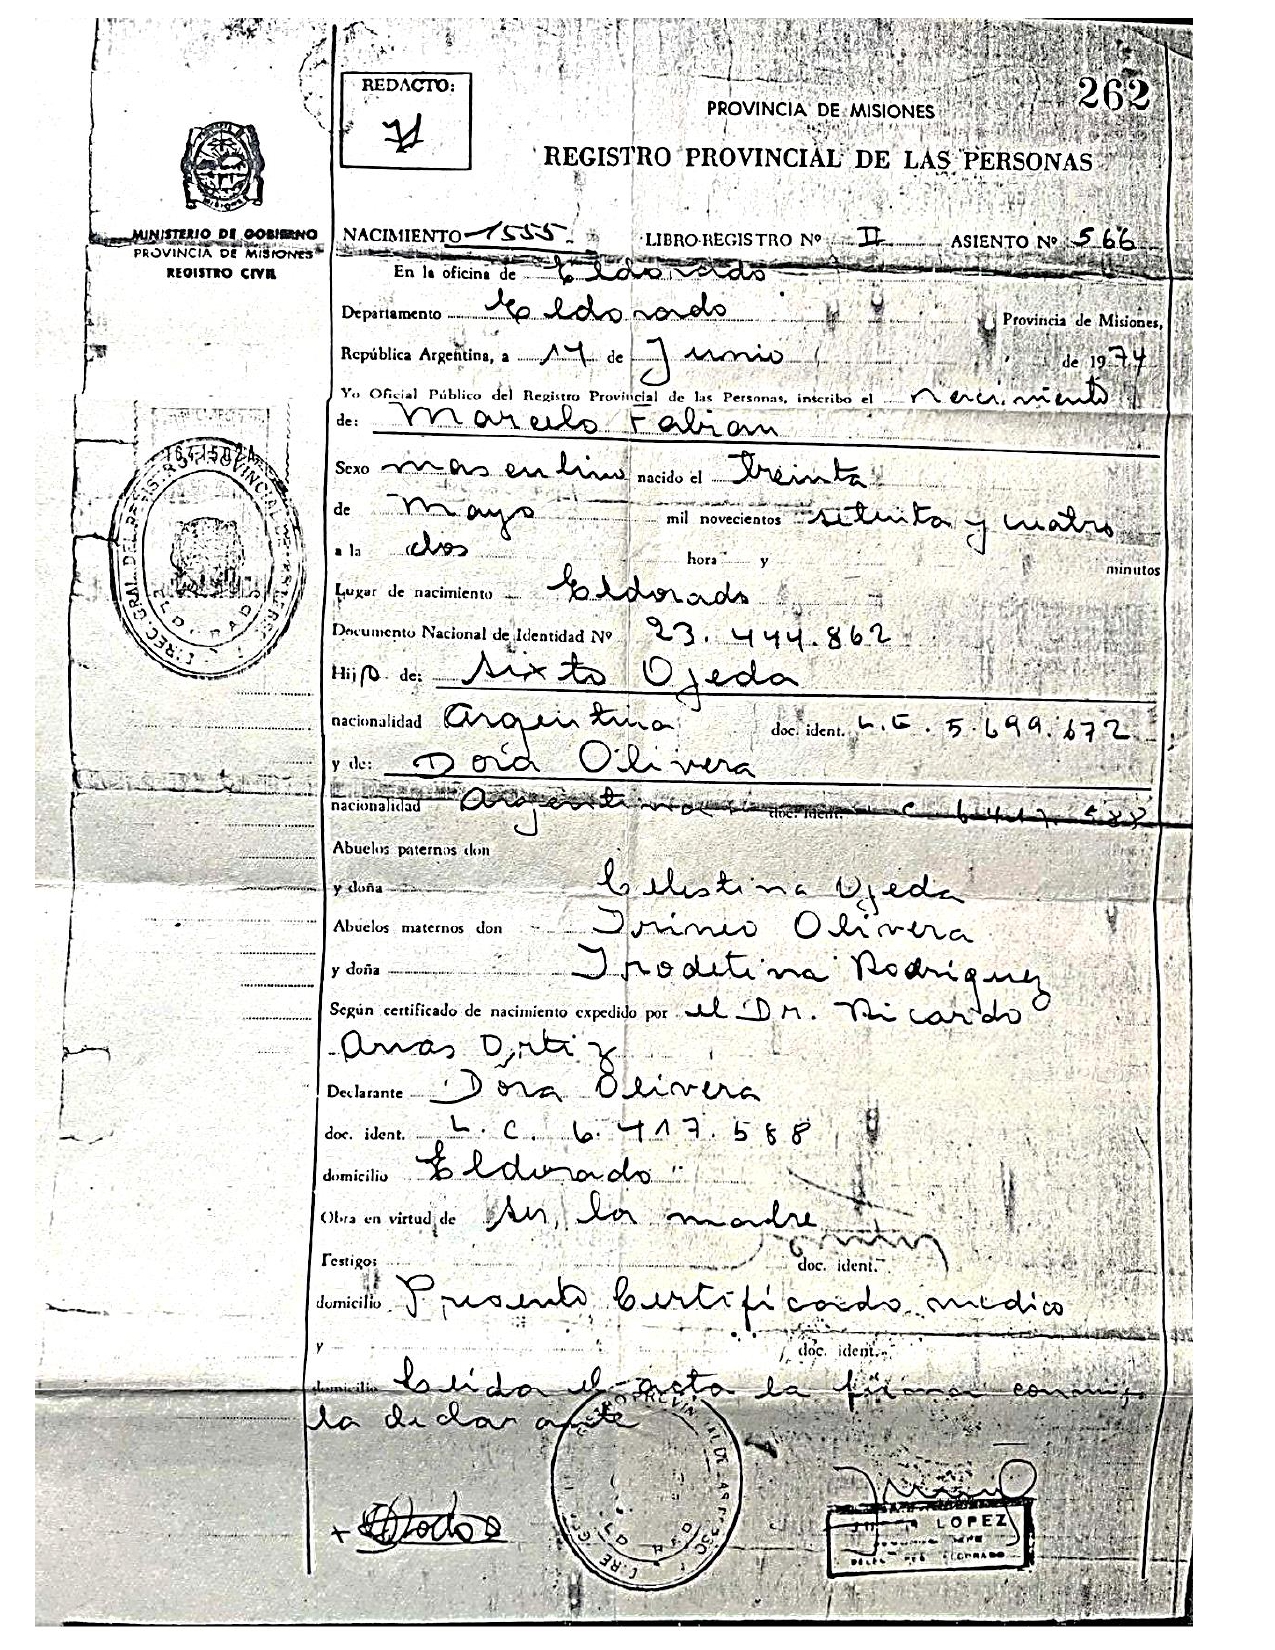 262
REDACTO:
PROVINCIA DE MISIONES
REGISTRO PROVINCIAL DE LAS PERSONAS
MINISTERIO DE GOBIERNO
PROVINCIA DE MISIONES
REGISTRO CIVIL
NACIMIENTO 1555. LIBRO REGISTRO Nº II ASIENTO Nº 566
En la oficina de Eldorado
Departamento Eldorado Provincia de Misiones,
República Argentina, a 14 de Junio de 1974
Yo Oficial Público del Registro Provincial de las Personas, inscribo el nacimiento
de: Marcelo Fabian
Sexo masculino nacido el treinta
de Mayo mil novecientos setenta y cuatro
a la dos hora y minutos
Lugar de nacimiento Eldorado
Documento Nacional de Identidad Nº 23.444.862
Hijo de: Sixto Ojeda
nacionalidad Argentina doc. ident. L.E. 5.699.672
y de: Dora Olivera
nacionalidad Argentina doc. ident. C 6.417.588
Abuelos paternos don
y doña Celestina Ojeda
Abuelos maternos don Irineo Olivera
y doña Rodriguez
Según certificado de nacimiento expedido por el Dr. Ricardo
Ortiz
Declarante Dora Olivera
doc. ident. L.C. 6.417.588
domicilio Eldorado
Obra en virtud de ser la madre
Testigo: doc. ident.
domicilio Presento Certificado medico
y doc. ident.
domicilio Leida el acta la firma conmigo
la declarante
LOPEZ